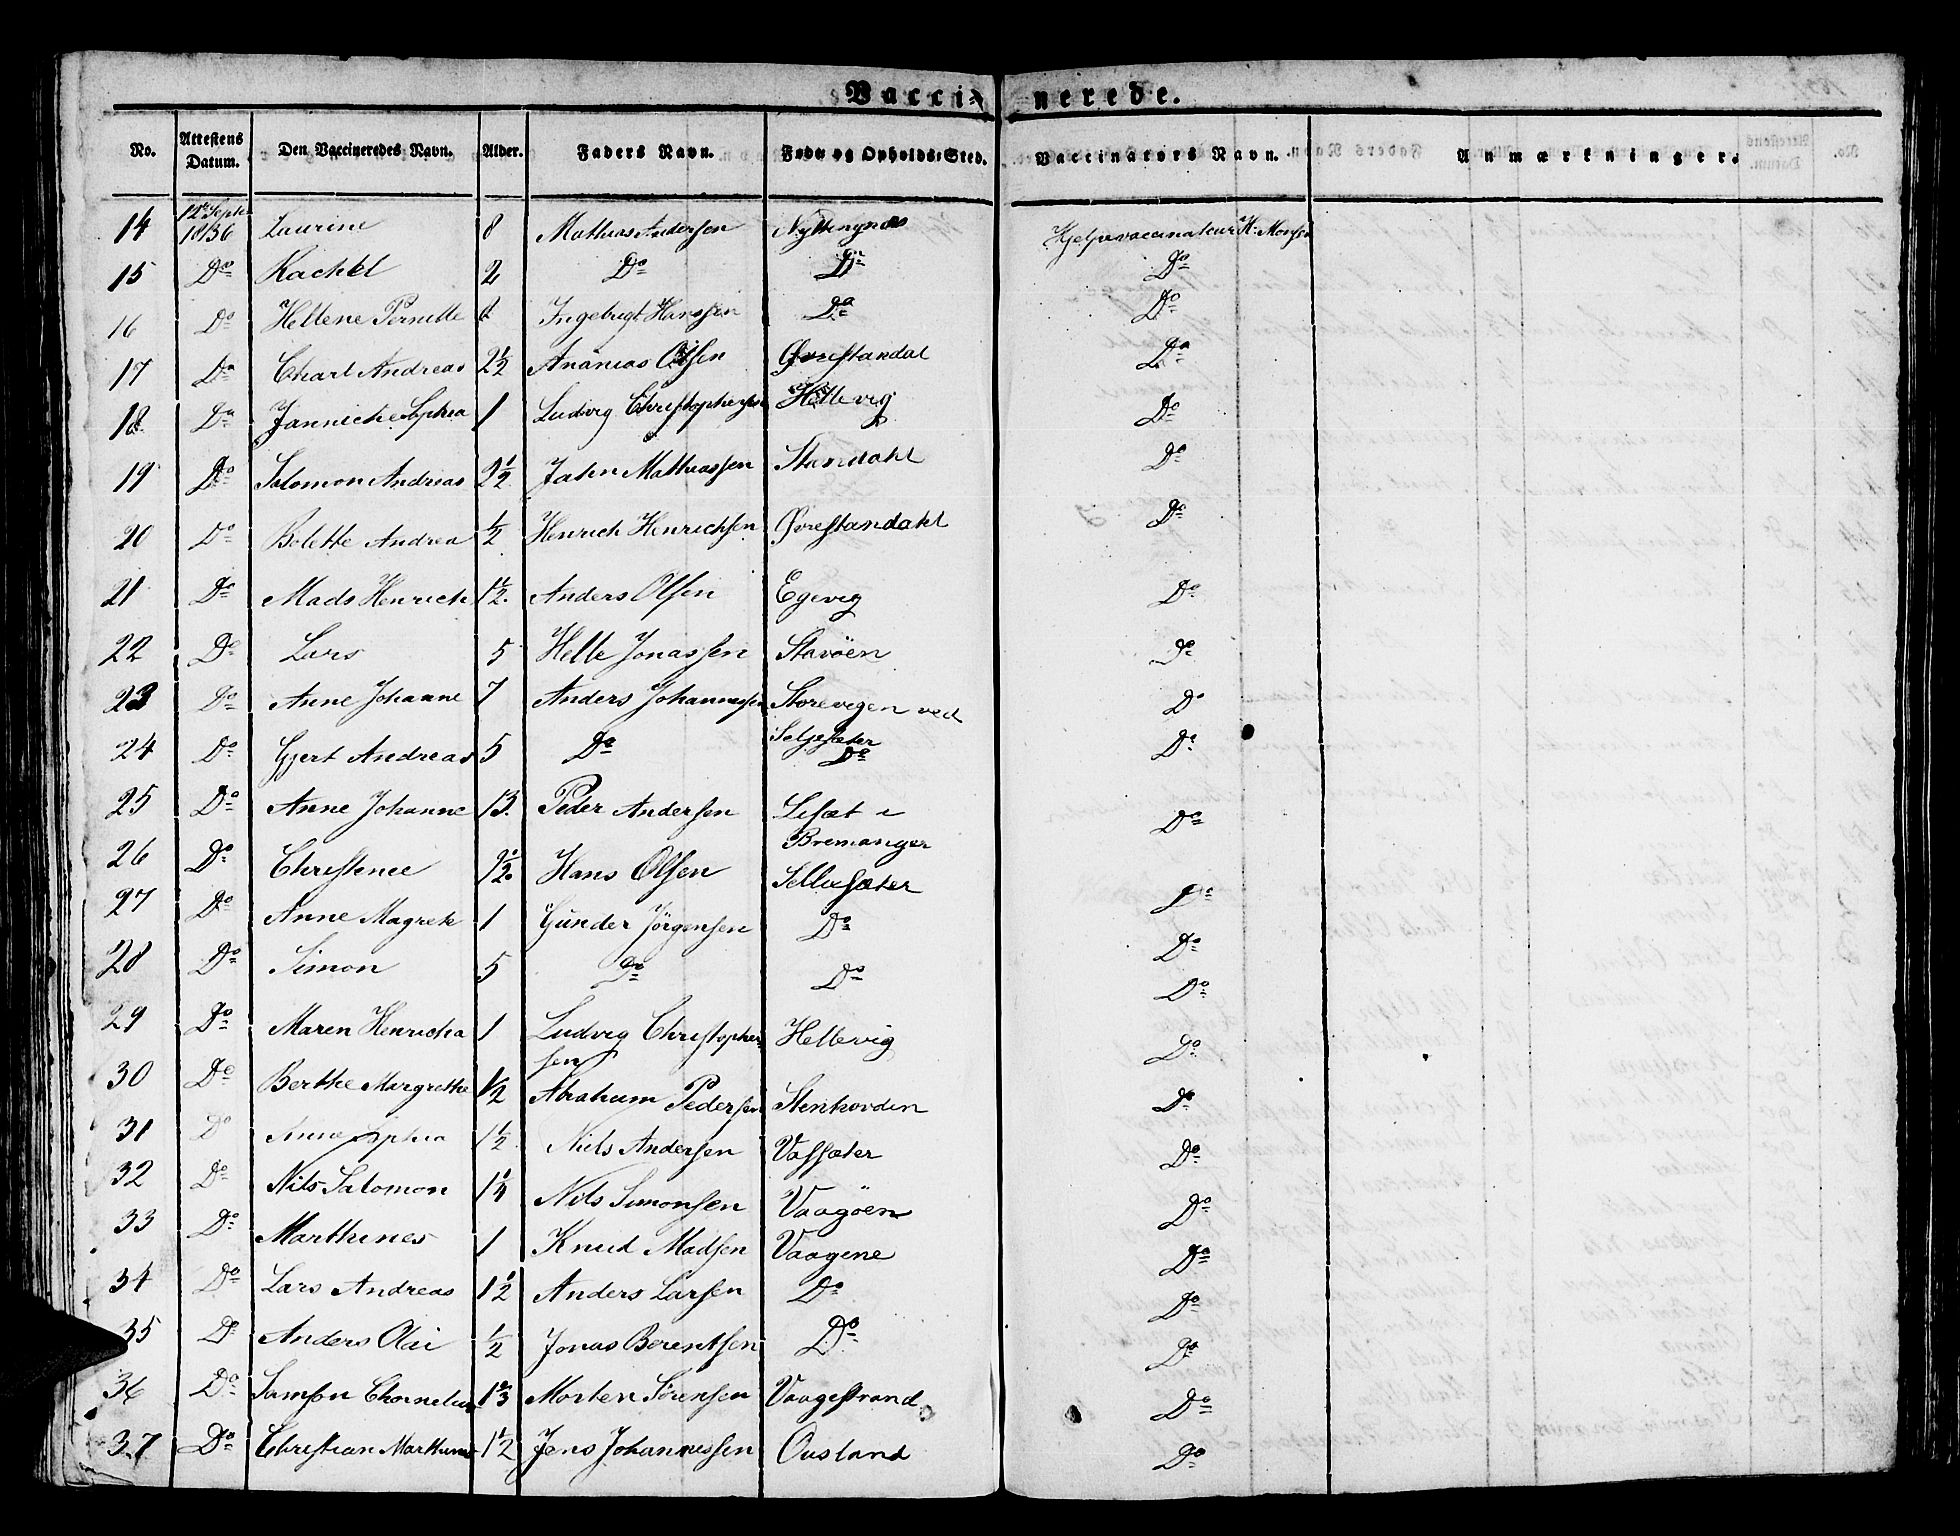 Vaccinerede.
No. Attestens Datum. Den Vaccineredes Navn. Alder. Faders Navn. Føde og Opholds-Sted. Vaccinators Navn. Anmærkninger.
14 12te Septbr 1836 Laurine 8 Mathias Andersen Nyttingnes Hjelpevaccinateur H. Monsen
15 Do Rachel 2 Do Do Do
16 Do Hellene Pernille Ingebrigt Hanssen Do Do
17 Do Charl Andreas 2½ Ananias Olsen Øvrestandal Do
18 Do Jannicke Sophia 1 Ludvig Christophersen Hellevig Do
19 Do Salomon Andreas 2½ Jahn Mathiassen Standahl Do
20 Do Bolette Andrea ½ Henrich Henrichsen Øvrestandahl Do
21 Do Mads Henrich 1½ Anders Olsen Egevig Do
22 Do Lars 5 Helle Jonassen Stavöen Do
23 Do Anne Johanne 7 Anders Johannessen Storevegen ved Do
Seljesæter
24 Do Gjert Andreas 5 Do Do Do
25 Do Anne Johanne 13 Peder Andersen Lesæt i Do
Bremanger
26 Do Christence Hans Olsen Sellesæter Do
27 Do Anne Magrete 1 Gunder Jörgensen Do Do
28 Do Simon 5 Do Do Do
29 Do Maren Henricha 1 Ludvig Christopher- Hellevig Do
sen
30 Do Berthe Margrethe ½ Abraham Pedersen Stenhovden Do
31 Do Anne Sophia 1½ Niels Andersen Vassæter Do
32 Do Nils Salomon 1¼ Nils Simonsen Vaagöen Do
33 Do Marthines 1 Knud Madsen Vaagene Do
34 Do Lars Andreas 1½ Anders Larsen Do Do
35 Do Anders Olai ½ Jonas Berentsen Do Do
36 Do Samson Chornelius 1⅔ Morten Sörensen Vaagestrand Do
37 Do Christian Marthinus 1½ Jens Johannessen Ousland Do